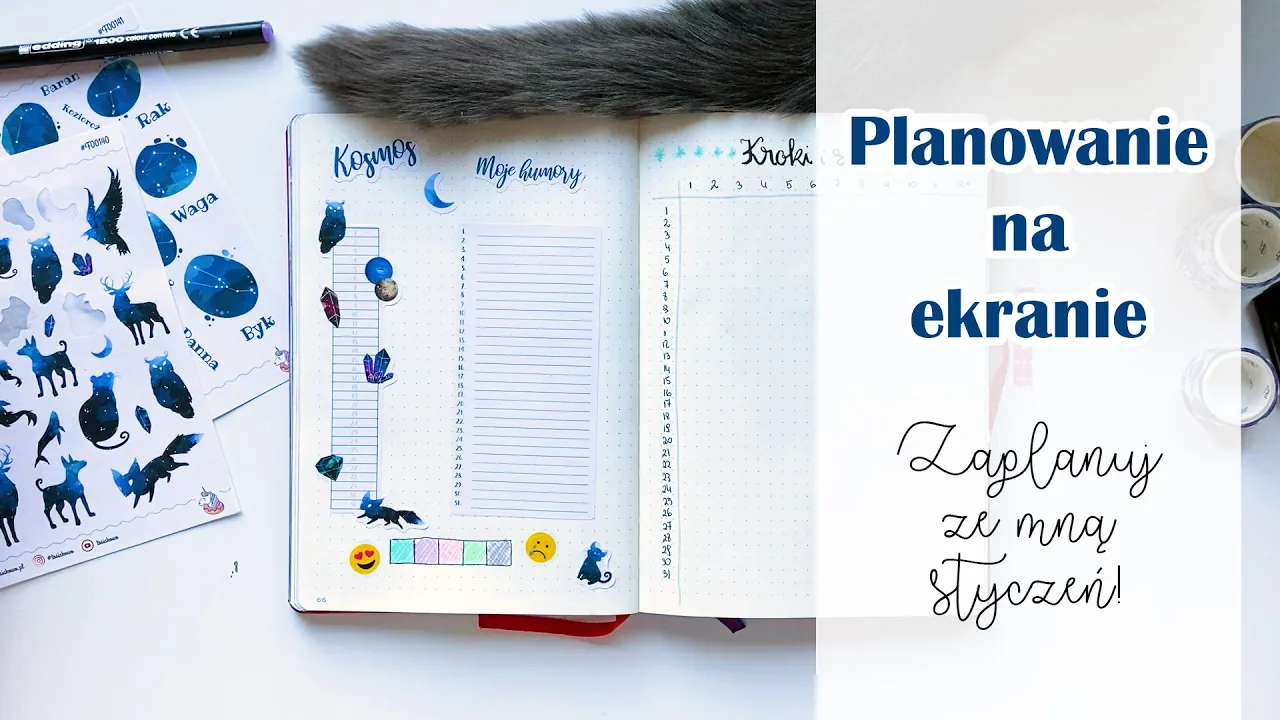 #F00141
edding 1200 colour pen fine CE
Baran
Rak
#F00140
Waga
Byk
Kosmos
Moje humory
66
Kroki
1 2 3 4 5 6
1
2
3
4
5
6
7
8
9
10
11
12
13
14
15
16
17
18
19
20
21
22
23
24
25
26
27
28
29
30
31
Planowanie
na
ekranie
Zaplanuj
ze mną
styczeń!